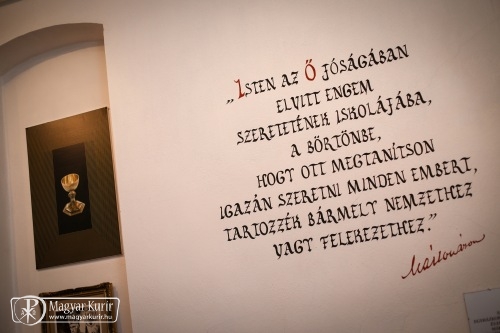 „Isten az Ő jóságában
elvitt engem
szeretetének iskolájába,
a börtönbe,
hogy ott megtanítson
igazán szeretni minden embert,
tartozzék bármely nemzethez
vagy felekezethez.”
Márton Áron
Magyar Kurír
www.magyarkurir.hu